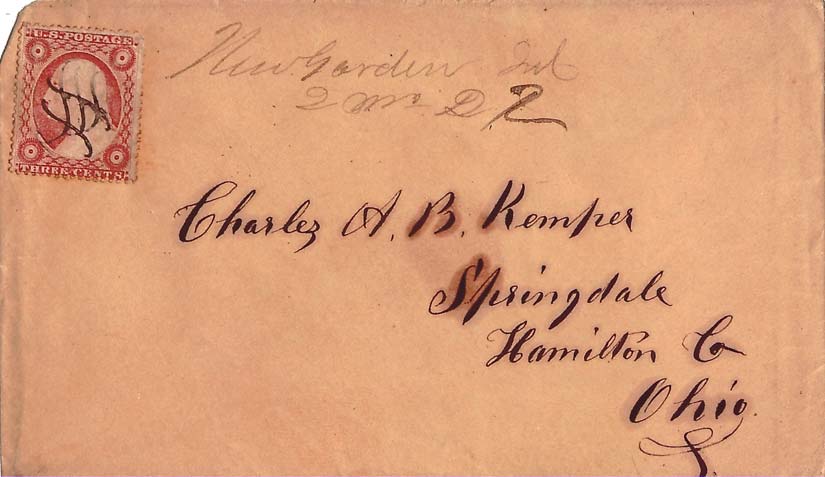 U.S. POSTAGE
THREE CENTS.
New Garden Ind
2 mo
Charles A. B. Kemper
Springdale
Hamilton Co
Ohio